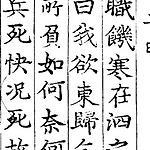 職饑寒在泗
曰我欲東歸
所負如何奈何
兵死快況死故